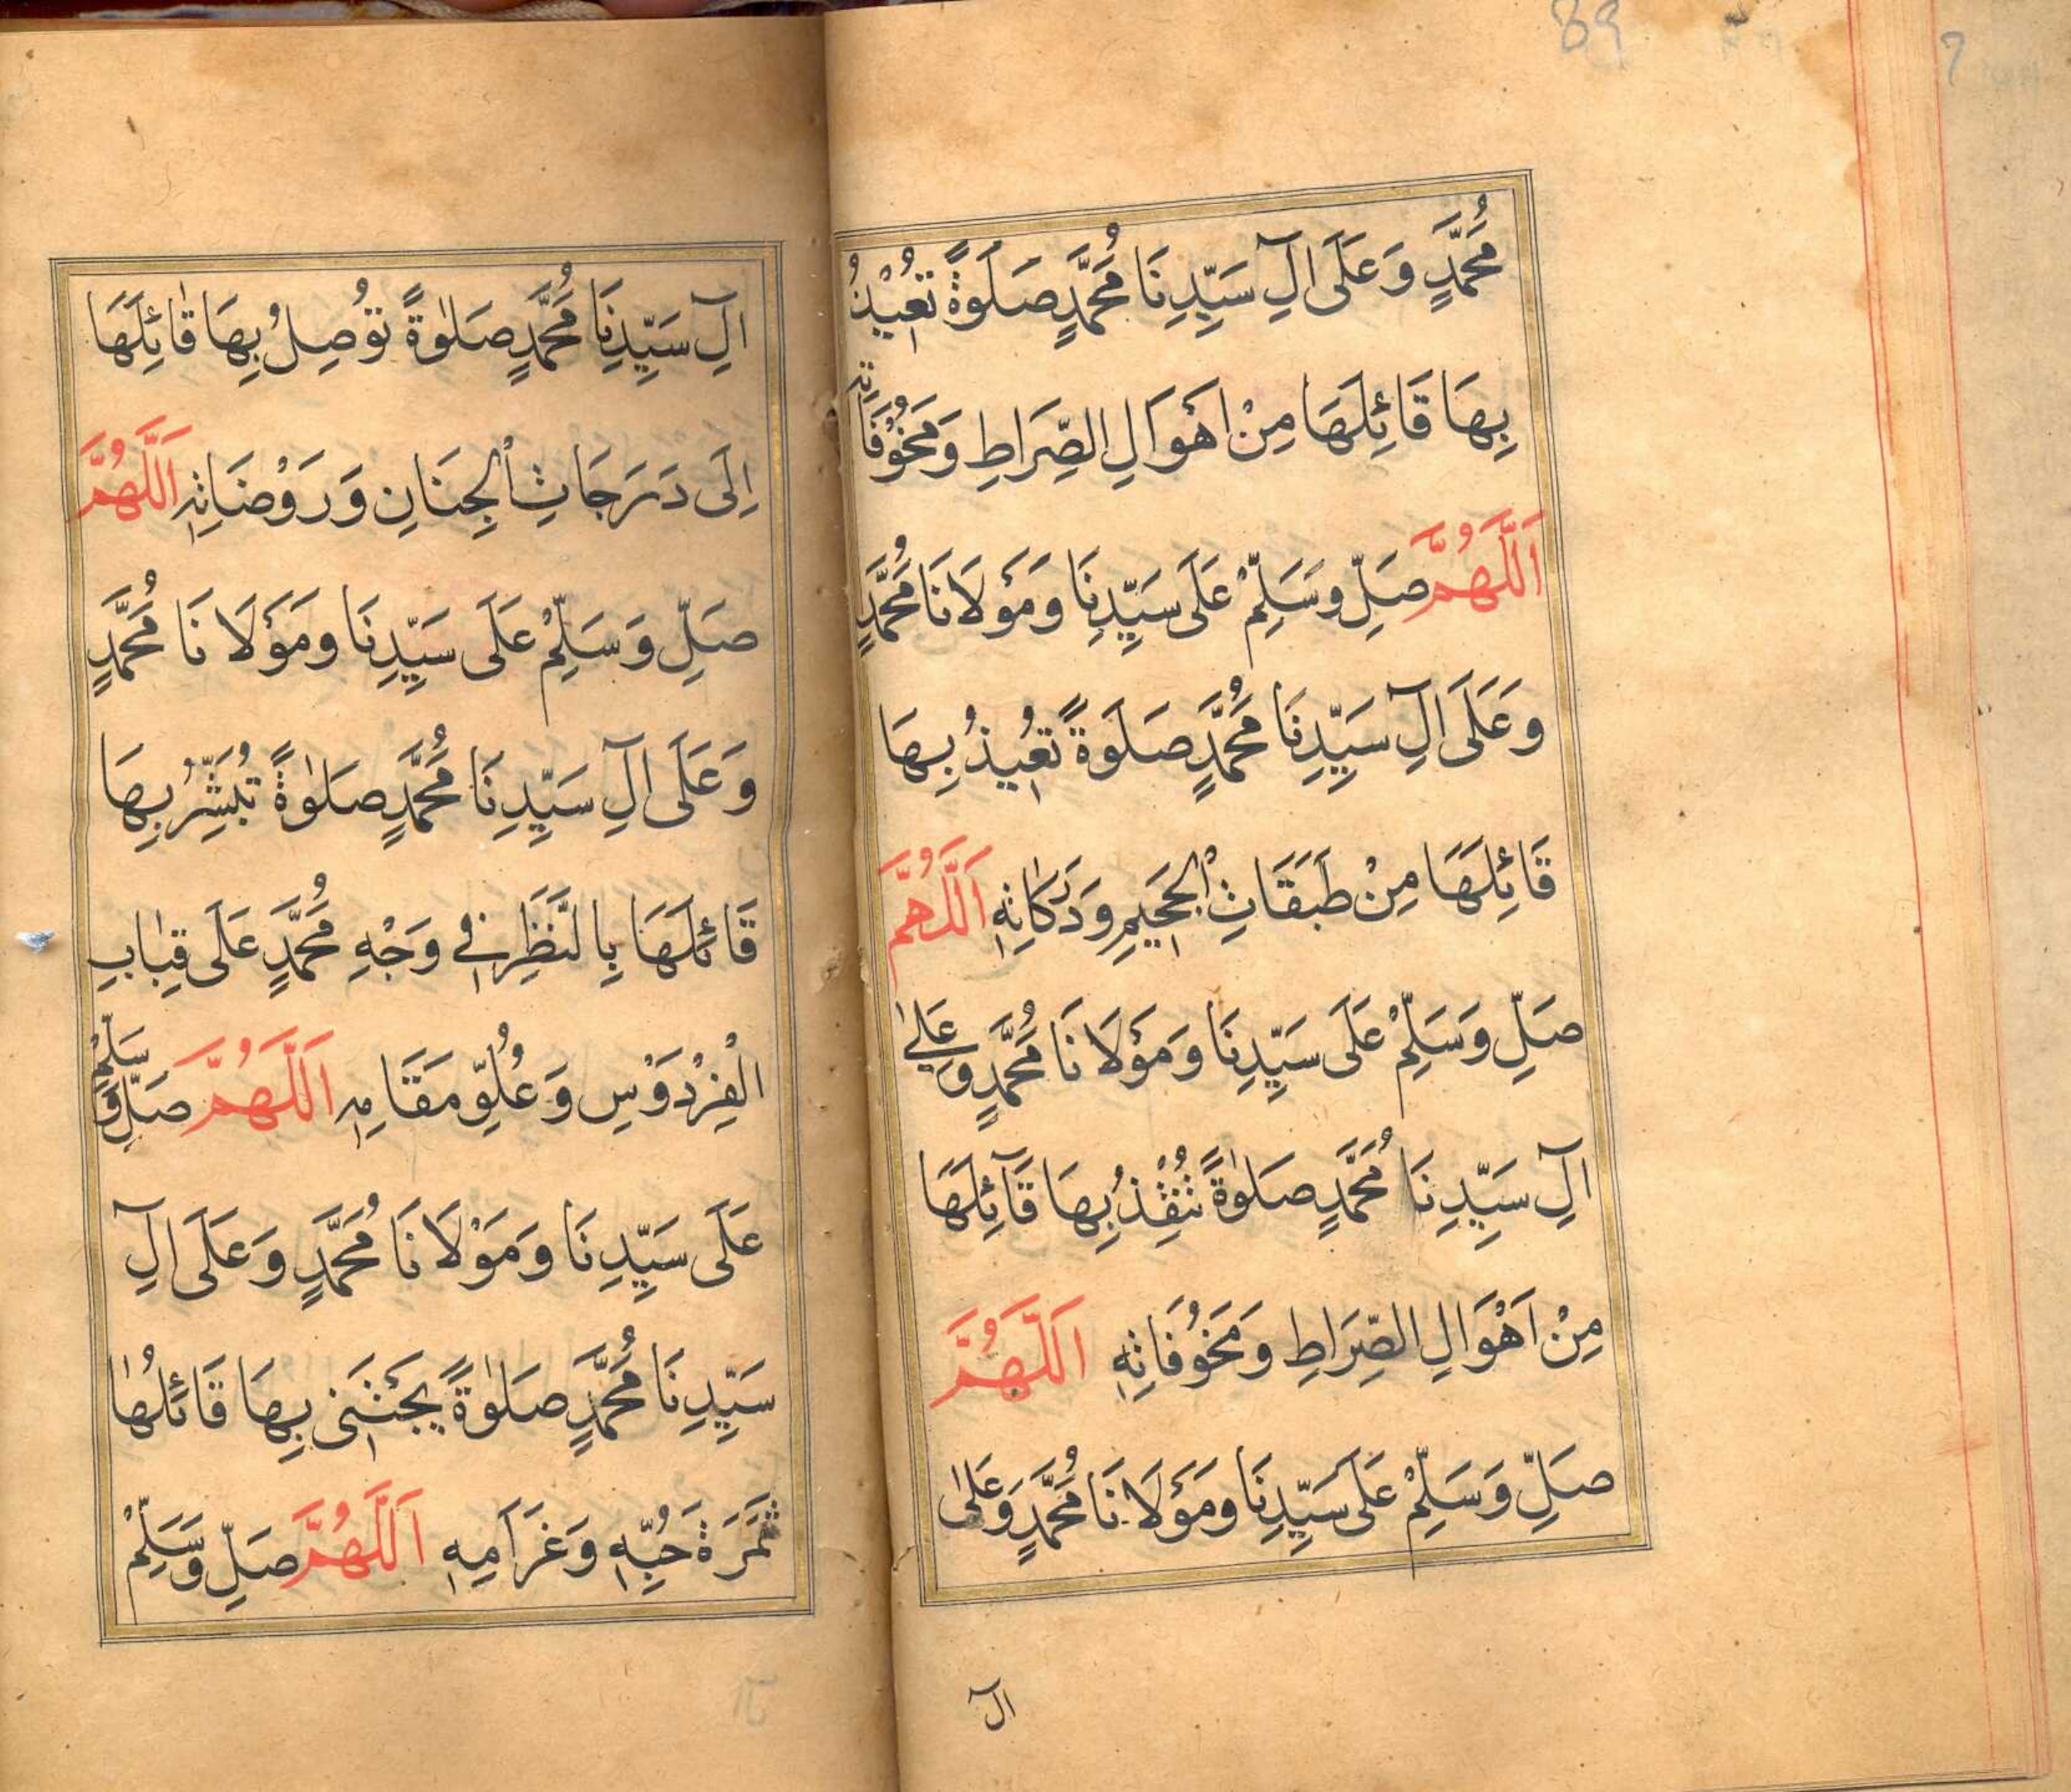 89
7
مُحَمَّدٍ وَعَلَى اٰلِ سَيِّدِنَا مُحَمَّدٍ صَلَوةً تُعِيْذُ
بِهَا قَائِلَهَا مِنْ اَهْوَالِ الصِّرَاطِ وَمَخُوْفَاتِهِ
اَللّٰهُمَّ صَلِّ وَسَلِّمْ عَلَى سَيِّدِنَا وَمَوْلَانَا مُحَمَّدٍ
وَعَلَى اٰلِ سَيِّدِنَا مُحَمَّدٍ صَلَوةً تُعِيذُ بِهَا
قَائِلَهَا مِنْ طَبَقَاتِ الْجَحِيمِ وَدَرَكَاتِهِ اَللّٰهُمَّ
صَلِّ وَسَلِّمْ عَلَى سَيِّدِنَا وَمَوْلَانَا مُحَمَّدٍ وَعَلٰى
اٰلِ سَيِّدِنَا مُحَمَّدٍ صَلٰوةً تُنْقِذُ بِهَا قَآئِلَهَا
مِنْ اَهْوَالِ الصِّرَاطِ وَمَخُوفَاتِهِ اَللّٰهُمَّ
صَلِّ وَسَلِّمْ عَلَى سَيِّدِنَا وَمَوْلَانَا مُحَمَّدٍ وَعَلٰى
اٰل
اٰلِ سَيِّدِنَا مُحَمَّدٍ صَلٰوةً تُوصِلُ بِهَا قٰائِلَهَا
اِلَى دَرَجَاتِ الْجِنَانِ وَرَوْضَاتِهِ اَللّٰهُمَّ
صَلِّ وَسَلِّمْ عَلَى سَيِّدِنَا وَمَوْلَانَا مُحَمَّدٍ
وَعَلَى اٰلِ سَيِّدِنَا مُحَمَّدٍ صَلٰوةً تُبَشِّرُ بِهَا
قَائِلَهَا بِالنَّظَرِ فِي وَجْهِ مُحَمَّدٍ عَلَى قِبَابِ
الْفِرْدَوْسِ وَعُلُوِّ مَقَامِهِ اَللّٰهُمَّ صَلِّ وَسَلِّمْ
عَلَى سَيِّدِنَا وَمَوْلَانَا مُحَمَّدٍ وَعَلَى اٰلِ
سَيِّدِنَا مُحَمَّدٍ صَلٰوةً يَجْتَنِى بِهَا قَائِلُهَا
ثَمَرَةَ حُبِّهِ وَغَرَامِهِ اَللّٰهُمَّ صَلِّ وَسَلِّمْ